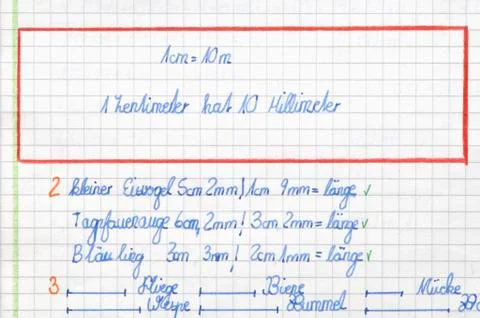 1cm = 10m
1 Zentimeter hat 10 Millimeter
2 kleiner Eisvogel 5cm 2mm! 1cm 9mm = länge ✓
Tagpfauenauge 6cm, 2mm! 3cm 2mm = länge ✓
Bläuling 3cm 3mm! 2cm 1mm = länge ✓
3 Fliege Biene Mücke
Wespe Hummel